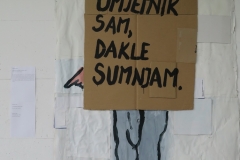 UMJETNIK
SAM,
DAKLE
SUMNJAM.